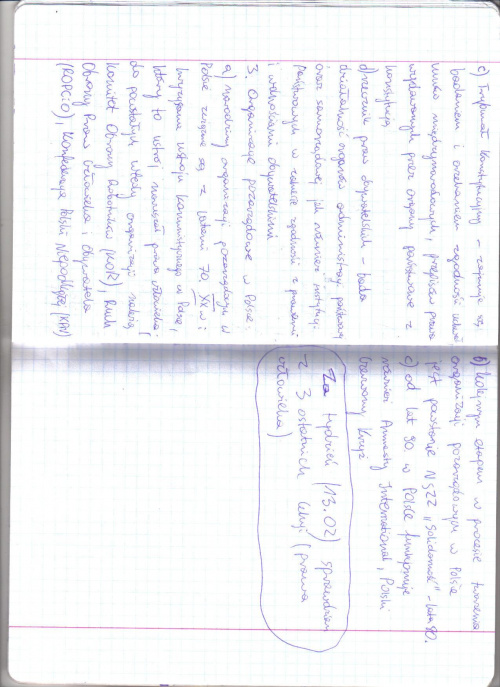 c) Trybunał Konstytucyjny – zajmuje się
badaniem i orzekaniem zgodności ustaw,
umów międzynarodowych, przepisów prawa
wydawanych przez organy państwowe z
konstytucją
d) rzecznik praw obywatelskich – bada
działalność organów administracji państwowej
oraz samorządowej jak również instytucji
państwowych w zakresie zgodności z prawami
i wolnościami obywatelskimi
3. Organizacje pozarządowe w Polsce.
a) narodziny organizacji pozarządowej w
Polsce związane są z latami 70, XX w i
kryzysem ustroju komunistycznego w Polsce,
który to ustrój naruszał prawa człowieka. (
do powstałych wtedy organizacji należą
Komitet Obrony Robotników (KOR), Ruch
Obrony Praw Człowieka i Obywatela
(ROPCiO), Konfederacja Polski Niepodległej (KPN)
b) Kolejnym etapem w procesie tworzenia
organizacji pozarządowych w Polsce
jest powstanie NSZZ „Solidarność” – lata 80.
c) od lat 90. w Polsce funkcjonuje
również Amnesty International, Polski
Czerwony Krzyż
Za tydzień (13.02) sprawdzian
z 3 ostatnich lekcji (prawa
człowieka)